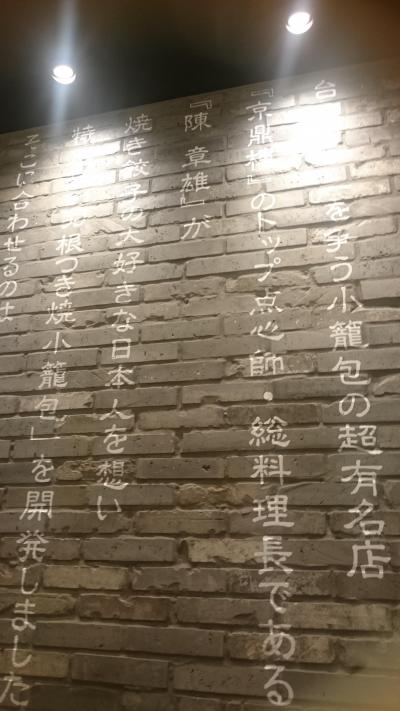 台 を争う小籠包の超有名店
『京鼎樓』のトップ点心師・総料理長である
『陳 章雄』が
焼き餃子の大好きな日本人を想い
羽根つき焼小籠包」を開発しました
そこに合わせるのは